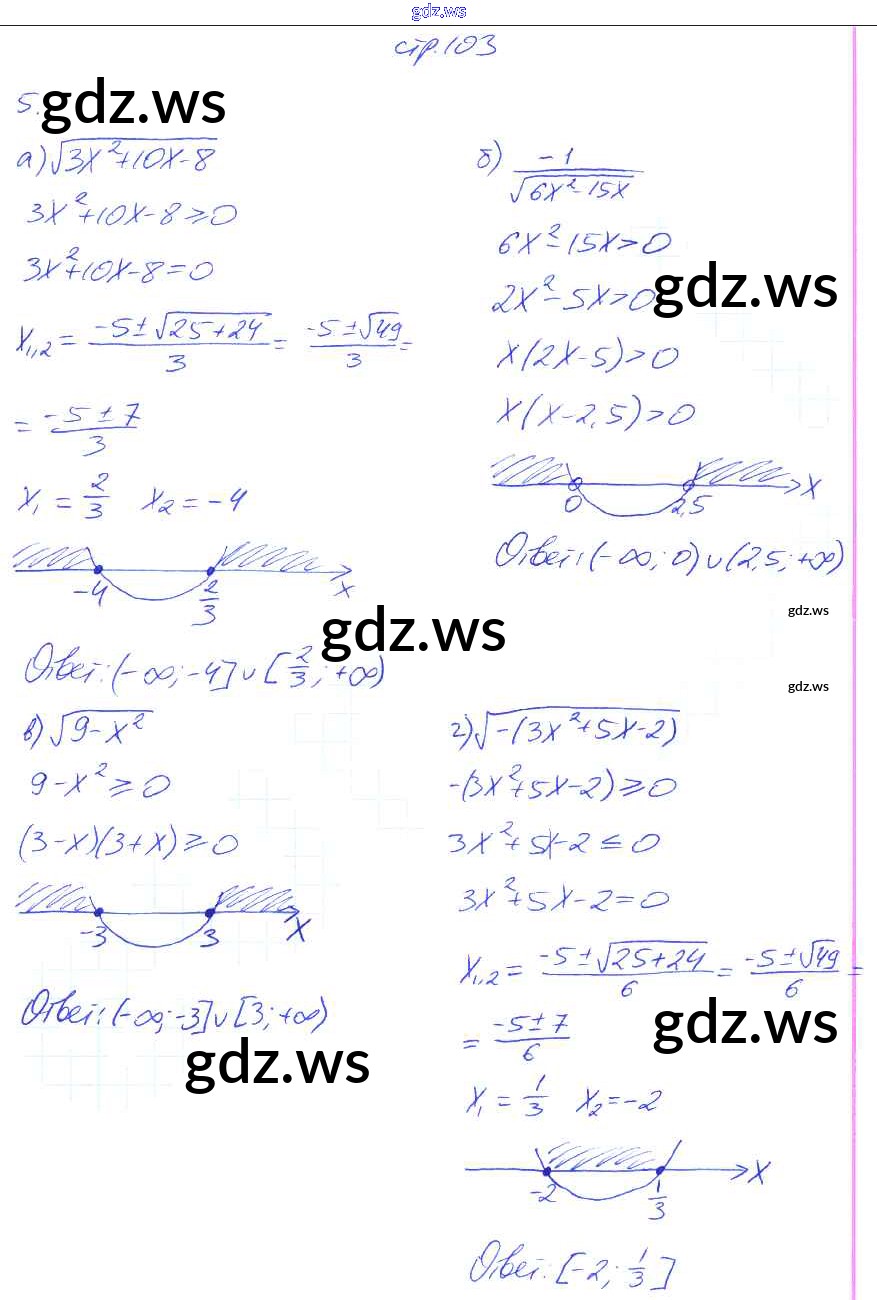 gdz.ws
стр.103
5.
gdz.ws
а) √(3x²+10x-8)
3x²+10x-8≥0
3x²+10x-8=0
x₁,₂ = (-5±√(25+24))/3 = (-5±√49)/3 =
= (-5±7)/3
x₁ = 2/3 x₂ = -4
-4 2/3 x
Ответ: (-∞; -4] ∪ [2/3; +∞)
gdz.ws
б) -1/√(6x²-15x)
6x²-15x>0
2x²-5x>0
gdz.ws
x(2x-5)>0
x(x-2,5)>0
0 2,5 x
Ответ: (-∞; 0) ∪ (2,5; +∞)
gdz.ws
gdz.ws
в) √(9-x²)
9-x²≥0
(3-x)(3+x)≥0
-3 3 x
Ответ: (-∞; -3] ∪ [3; +∞)
gdz.ws
г) √(-(3x²+5x-2))
-(3x²+5x-2)≥0
3x²+5x-2≤0
3x²+5x-2=0
x₁,₂ = (-5±√(25+24))/6 = (-5±√49)/6 =
gdz.ws
= (-5±7)/6
x₁ = 1/3 x₂ = -2
-2 1/3 x
Ответ: [-2; 1/3]